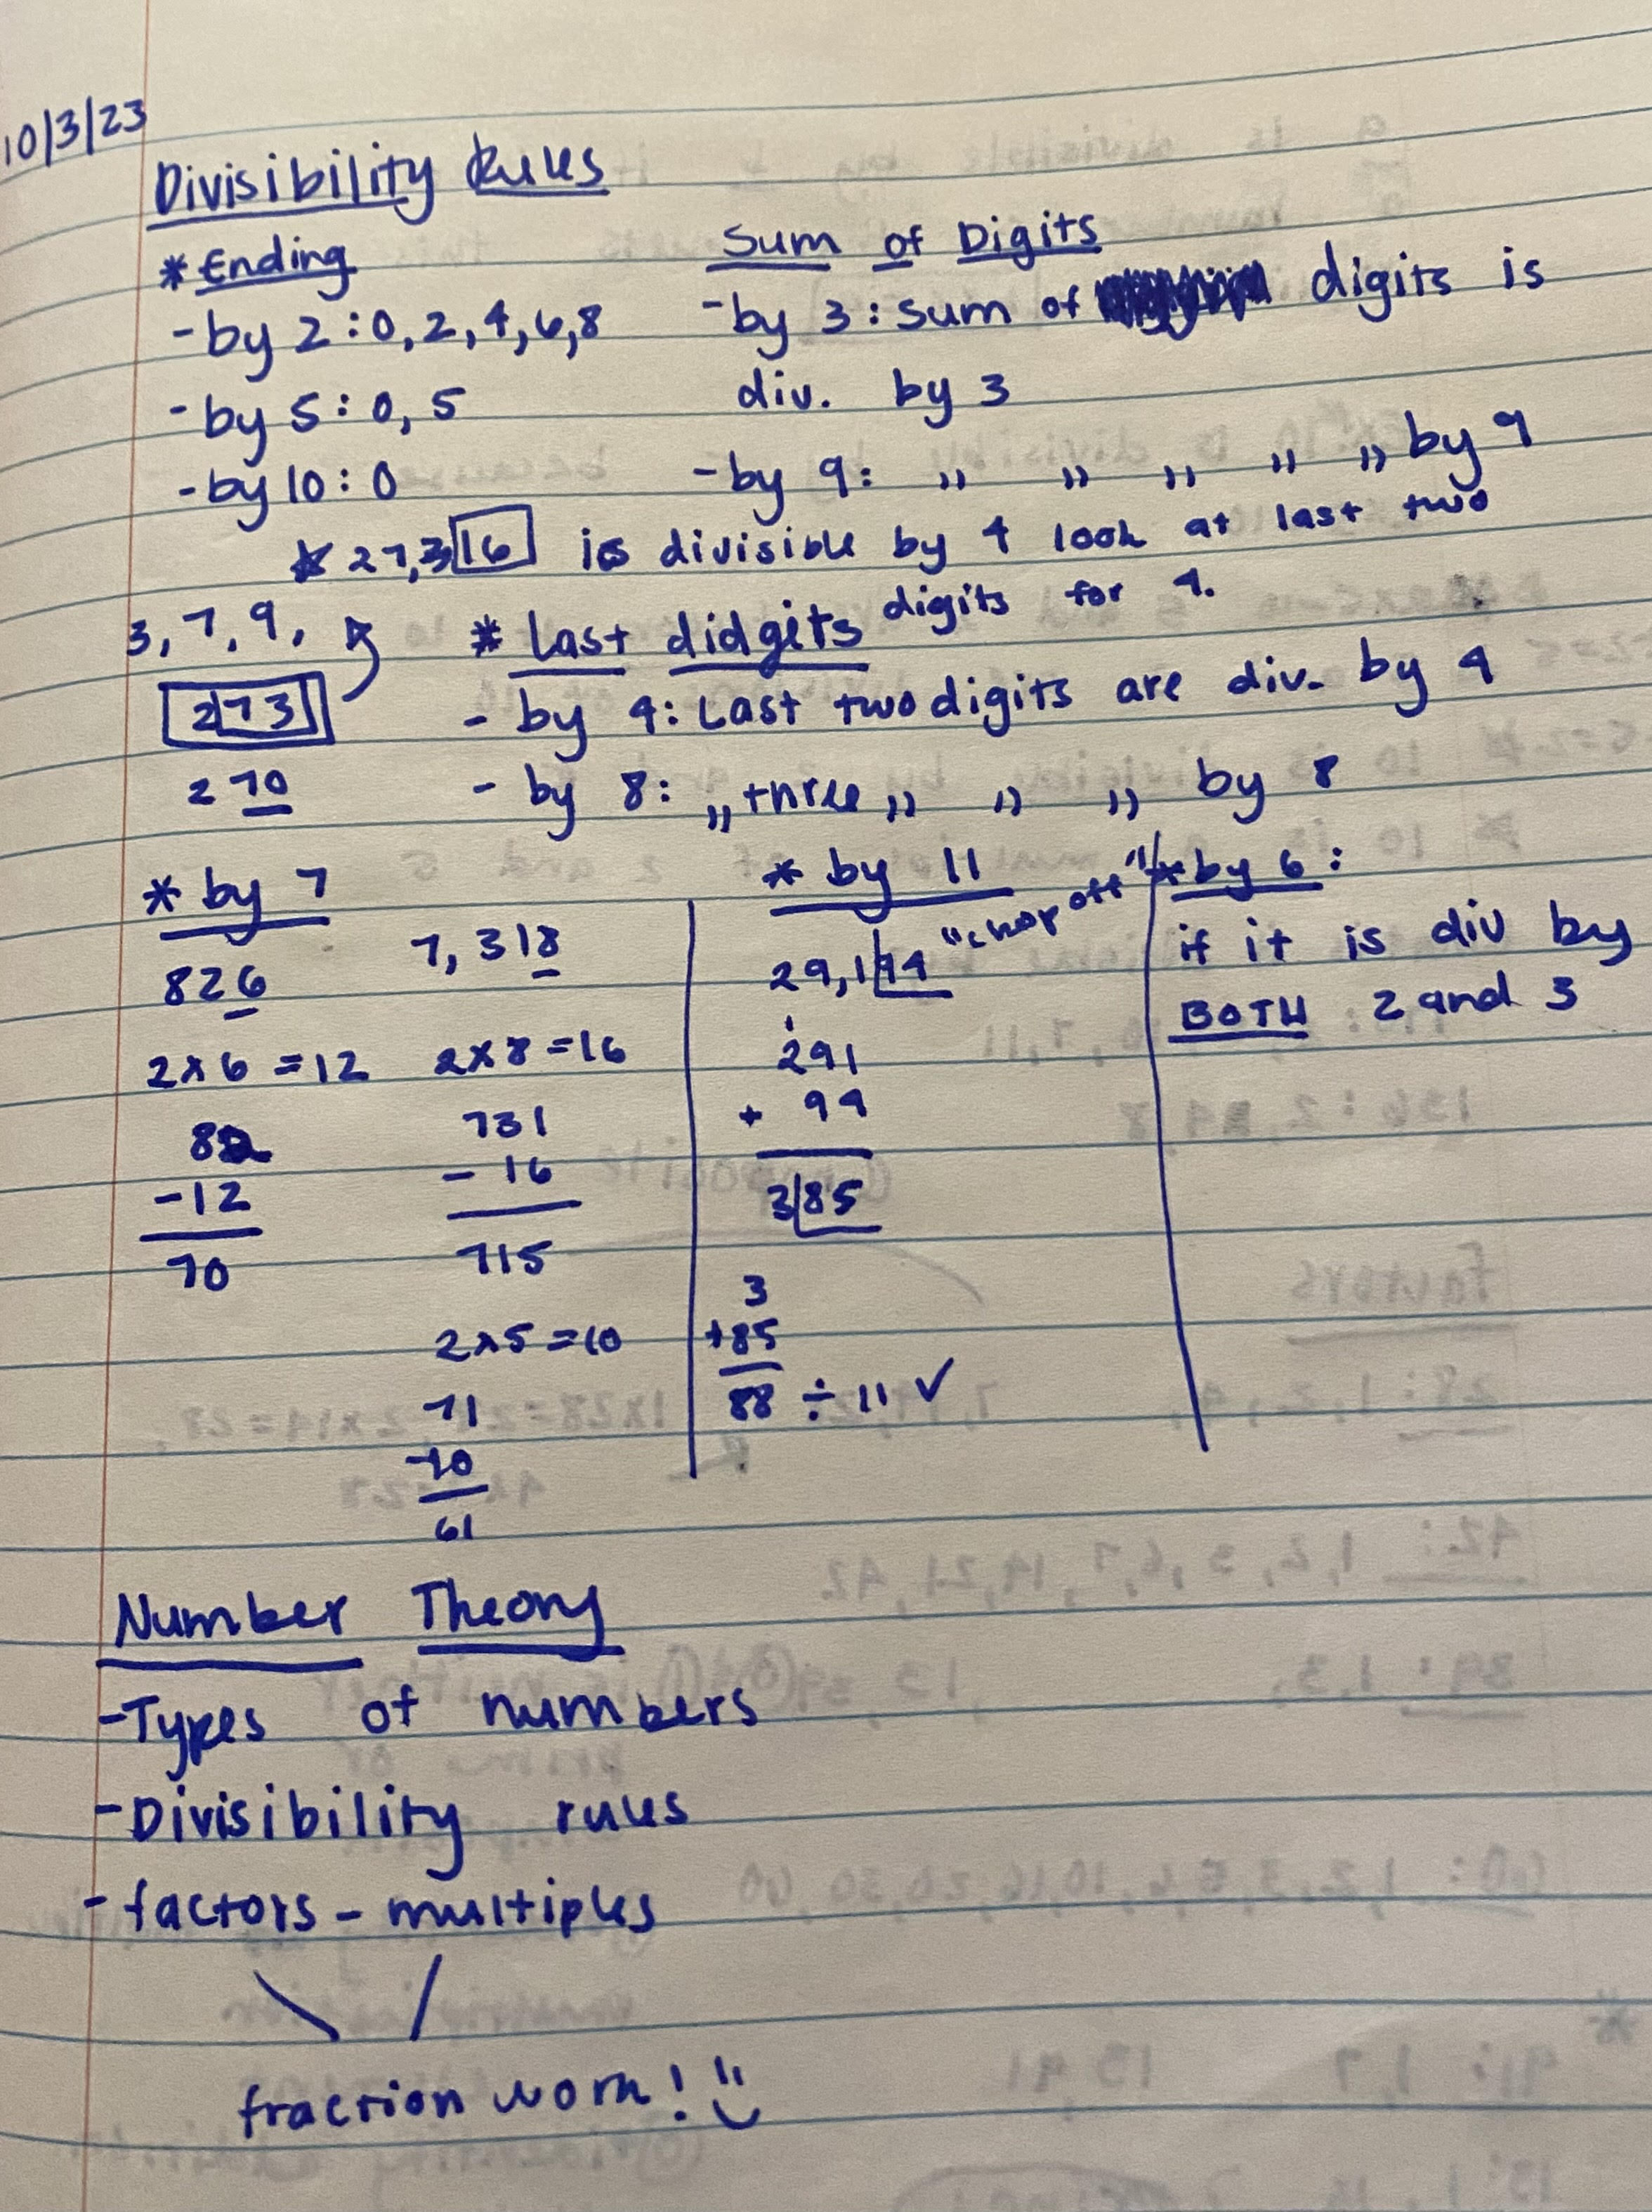 10/3/23
Divisibility Rules
* Ending
- by 2 : 0, 2, 4, 6, 8
- by 5 : 0, 5
- by 10 : 0
Sum of Digits
- by 3 : sum of digits is
div. by 3
- by 9 : " " " " " by 9
* 27,316 is divisible by 4 look at last two
digits for 4.
3, 7, 9,
273
270
* Last didgits
- by 4: Last two digits are div. by 4
- by 8: " three " " " by 8
* by 7
826
2 x 6 = 12
82
-12
70
7,318
2 x 8 = 16
731
- 16
715
2 x 5 = 10
71
-10
61
* by 11
29,194 "chop off"
1
291
+ 94
385
3
+85
88 ÷ 11 ✓
* by 6 :
if it is div by
BOTH 2 and 3
Number Theory
- Types of numbers
- Divisibility rules
- factors - multiples
fraction work! :)